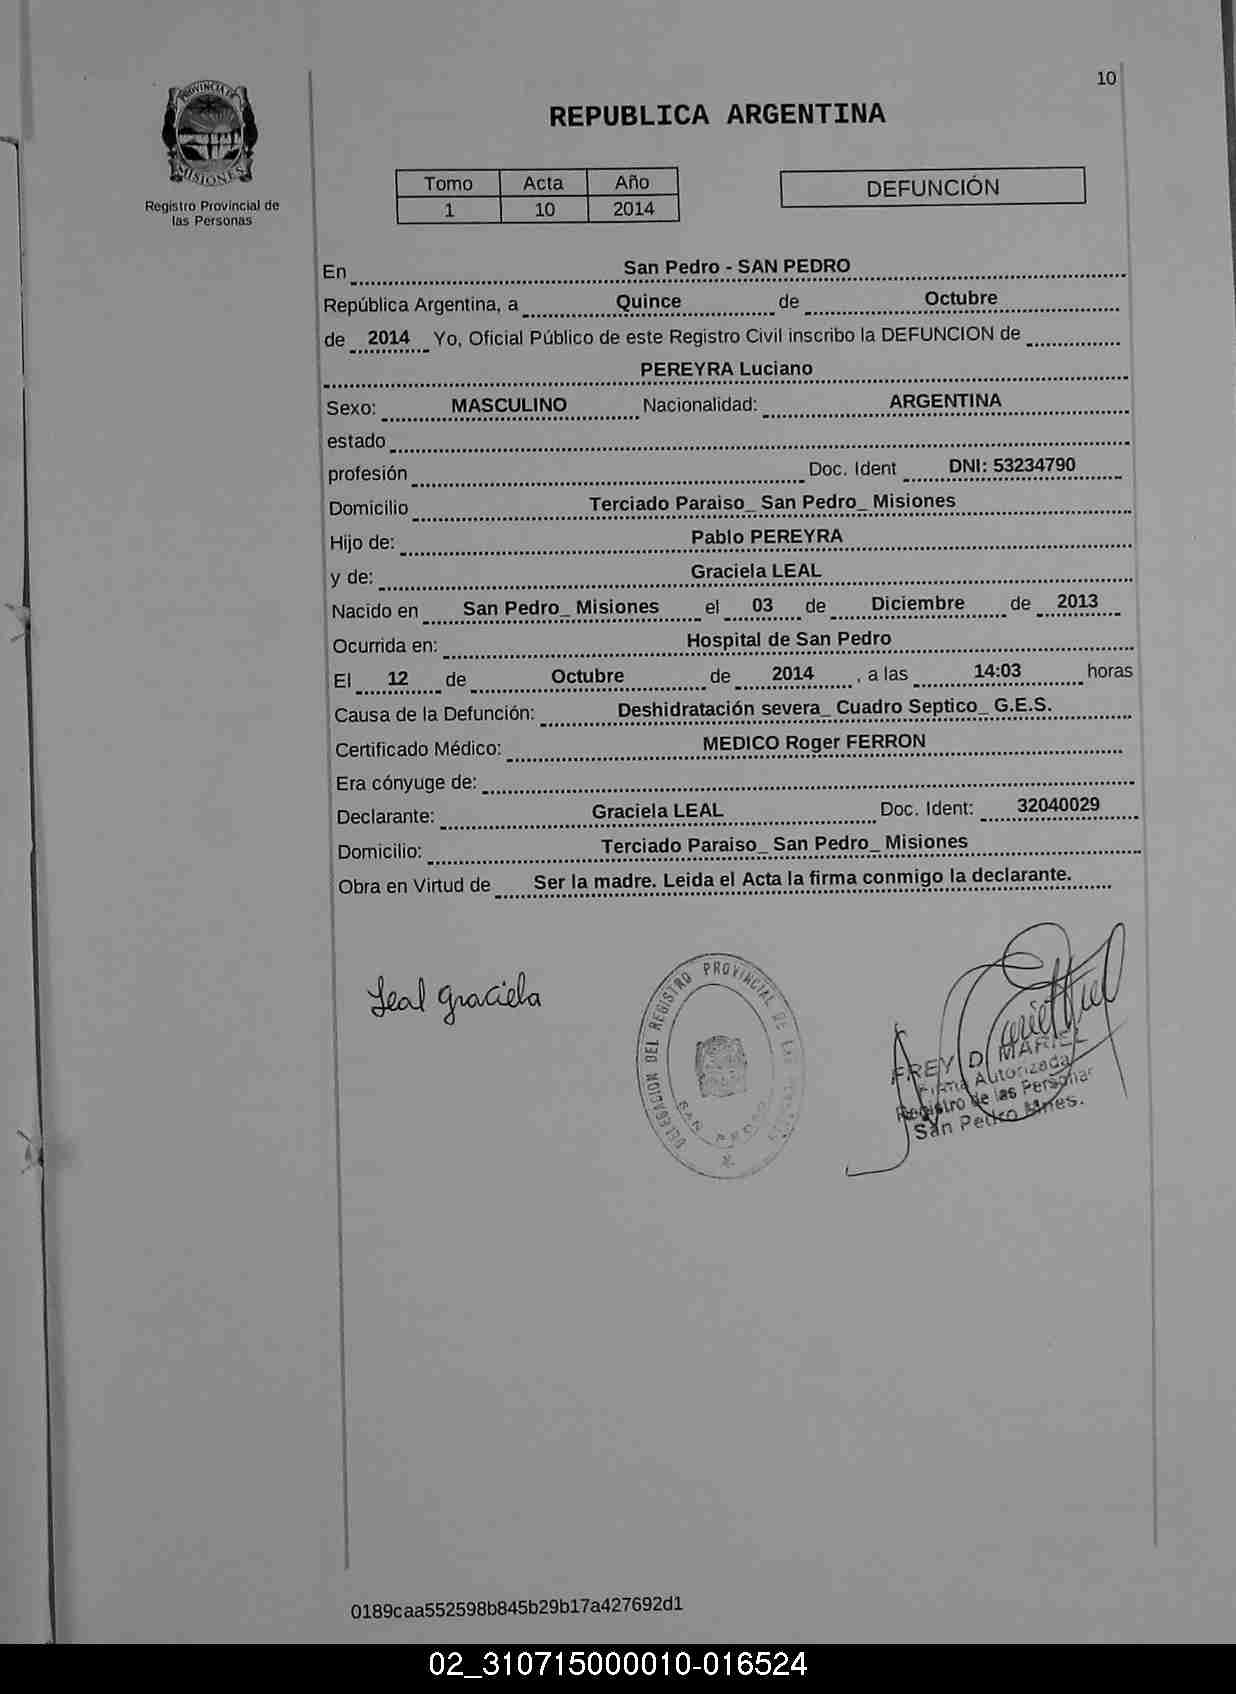 10
PROVINCIA DE
MISIONES
Registro Provincial de
las Personas
REPUBLICA ARGENTINA
Tomo Acta Año
1 10 2014
DEFUNCIÓN
En San Pedro - SAN PEDRO
República Argentina, a Quince de Octubre
de 2014 Yo, Oficial Público de este Registro Civil inscribo la DEFUNCION de
PEREYRA Luciano
Sexo: MASCULINO Nacionalidad: ARGENTINA
estado
profesión Doc. Ident DNI: 53234790
Domicilio Terciado Paraiso_ San Pedro_ Misiones
Hijo de: Pablo PEREYRA
y de: Graciela LEAL
Nacido en San Pedro_ Misiones el 03 de Diciembre de 2013
Ocurrida en: Hospital de San Pedro
El 12 de Octubre de 2014 , a las 14:03 horas
Causa de la Defunción: Deshidratación severa_ Cuadro Septico_ G.E.S.
Certificado Médico: MEDICO Roger FERRON
Era cónyuge de:
Declarante: Graciela LEAL Doc. Ident: 32040029
Domicilio: Terciado Paraiso_ San Pedro_ Misiones
Obra en Virtud de Ser la madre. Leida el Acta la firma conmigo la declarante.
Leal Graciela
DELEGACION DEL REGISTRO PROVINCIAL DE LAS
SAN PEDRO
FREY D. MARIEL
Firma Autorizada
Registro de las Personas
San Pedro Mnes.
0189caa552598b845b29b17a427692d1
02_310715000010-016524